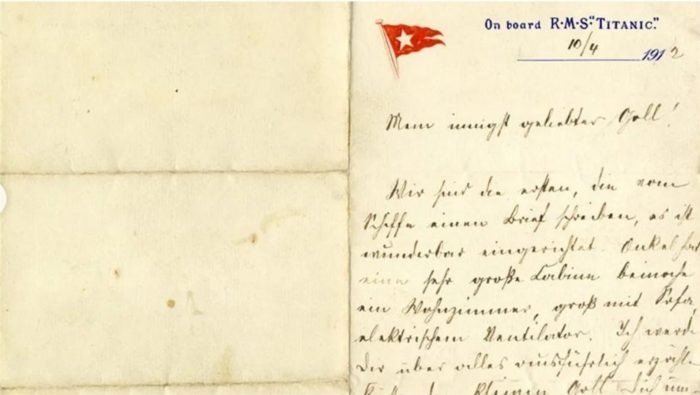 On board R·M·S·"TITANIC."
10/4 1912
Mein innigst geliebter Goll!
Wir sind die ersten, die vom
Schiffe einen Brief schreiben, es ist
wunderbar eingerichtet. Onkel hat
eine sehr große Cabine beinahe
ein Wohnzimmer, groß mit Sofa,
elektrischem Ventilator. Ich werde
Dir über alles ausführlich erzähl
kleinen Goll Dich